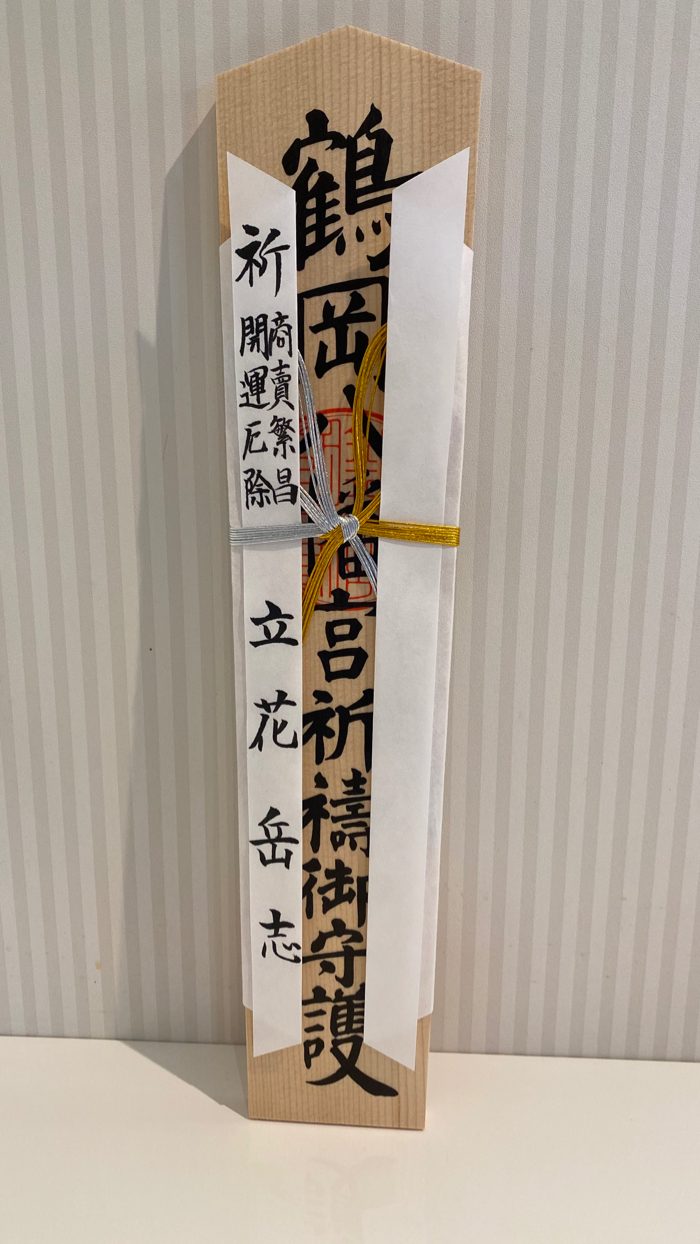 鶴岡八幡宮祈禱御守護
祈
商賣繁昌
開運厄除
立花岳志